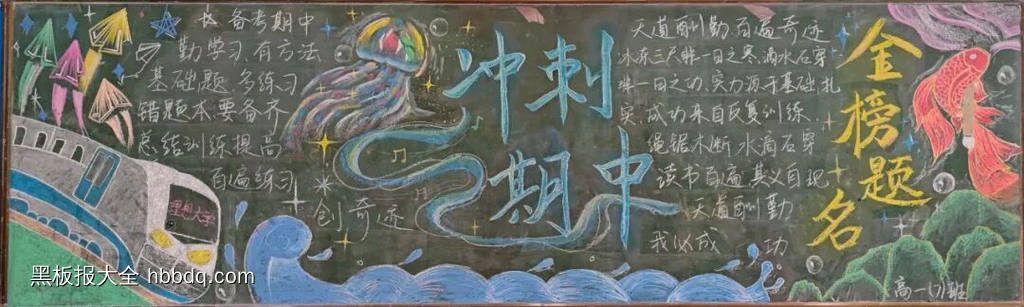 备考期中
勤学习,有方法
基础题,多练习
错题本要备齐
总结训练提高
百遍练习
创奇迹
冲刺
期中
天道酬勤百遍奇迹
冰冻三尺非一日之寒,滴水石穿
非一日之功,实力源于基础扎
实,成功来自反复训练,
绳锯木断水滴石穿
读书百遍其义自现
天道酬勤
我以成 功
金榜题名
理想大学
高一(7)班
黑板报大全 hbbdq.com